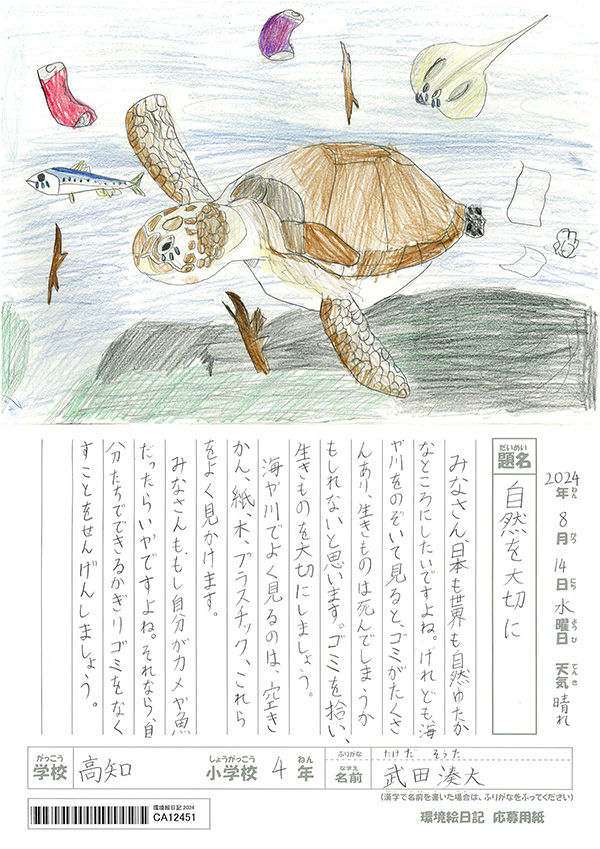 2024年 8月 14日 水曜日 天気 晴れ
ねん がつ にち ようび てんき
だいめい
題名
自然を大切に
みなさん、日本も世界も自然ゆたか
なところにしたいですよね。けれども、海
や川をのぞいて見ると、ゴミがたくさ
んあり、生きものは死んでしまうか
もしれないと思います。ゴミを拾い、
生きものを大切にしましょう。
海や川でよく見るのは、空き
かん、紙、木、プラスチック、これら
をよく見かけます。
みなさんも、もし自分がカメや魚
だったらいやですよね。それなら、自
分たちでできるかぎりゴミをなく
すことをせんげんしましょう。
がっこう しょうがっこう ねん
学校 高知 小学校 4年
ふりがな たけだ そうた
なまえ
名前 武田湊大
(漢字で名前を書いた場合は、ふりがなをふってください)
環境絵日記2024
CA12451
環境絵日記 応募用紙